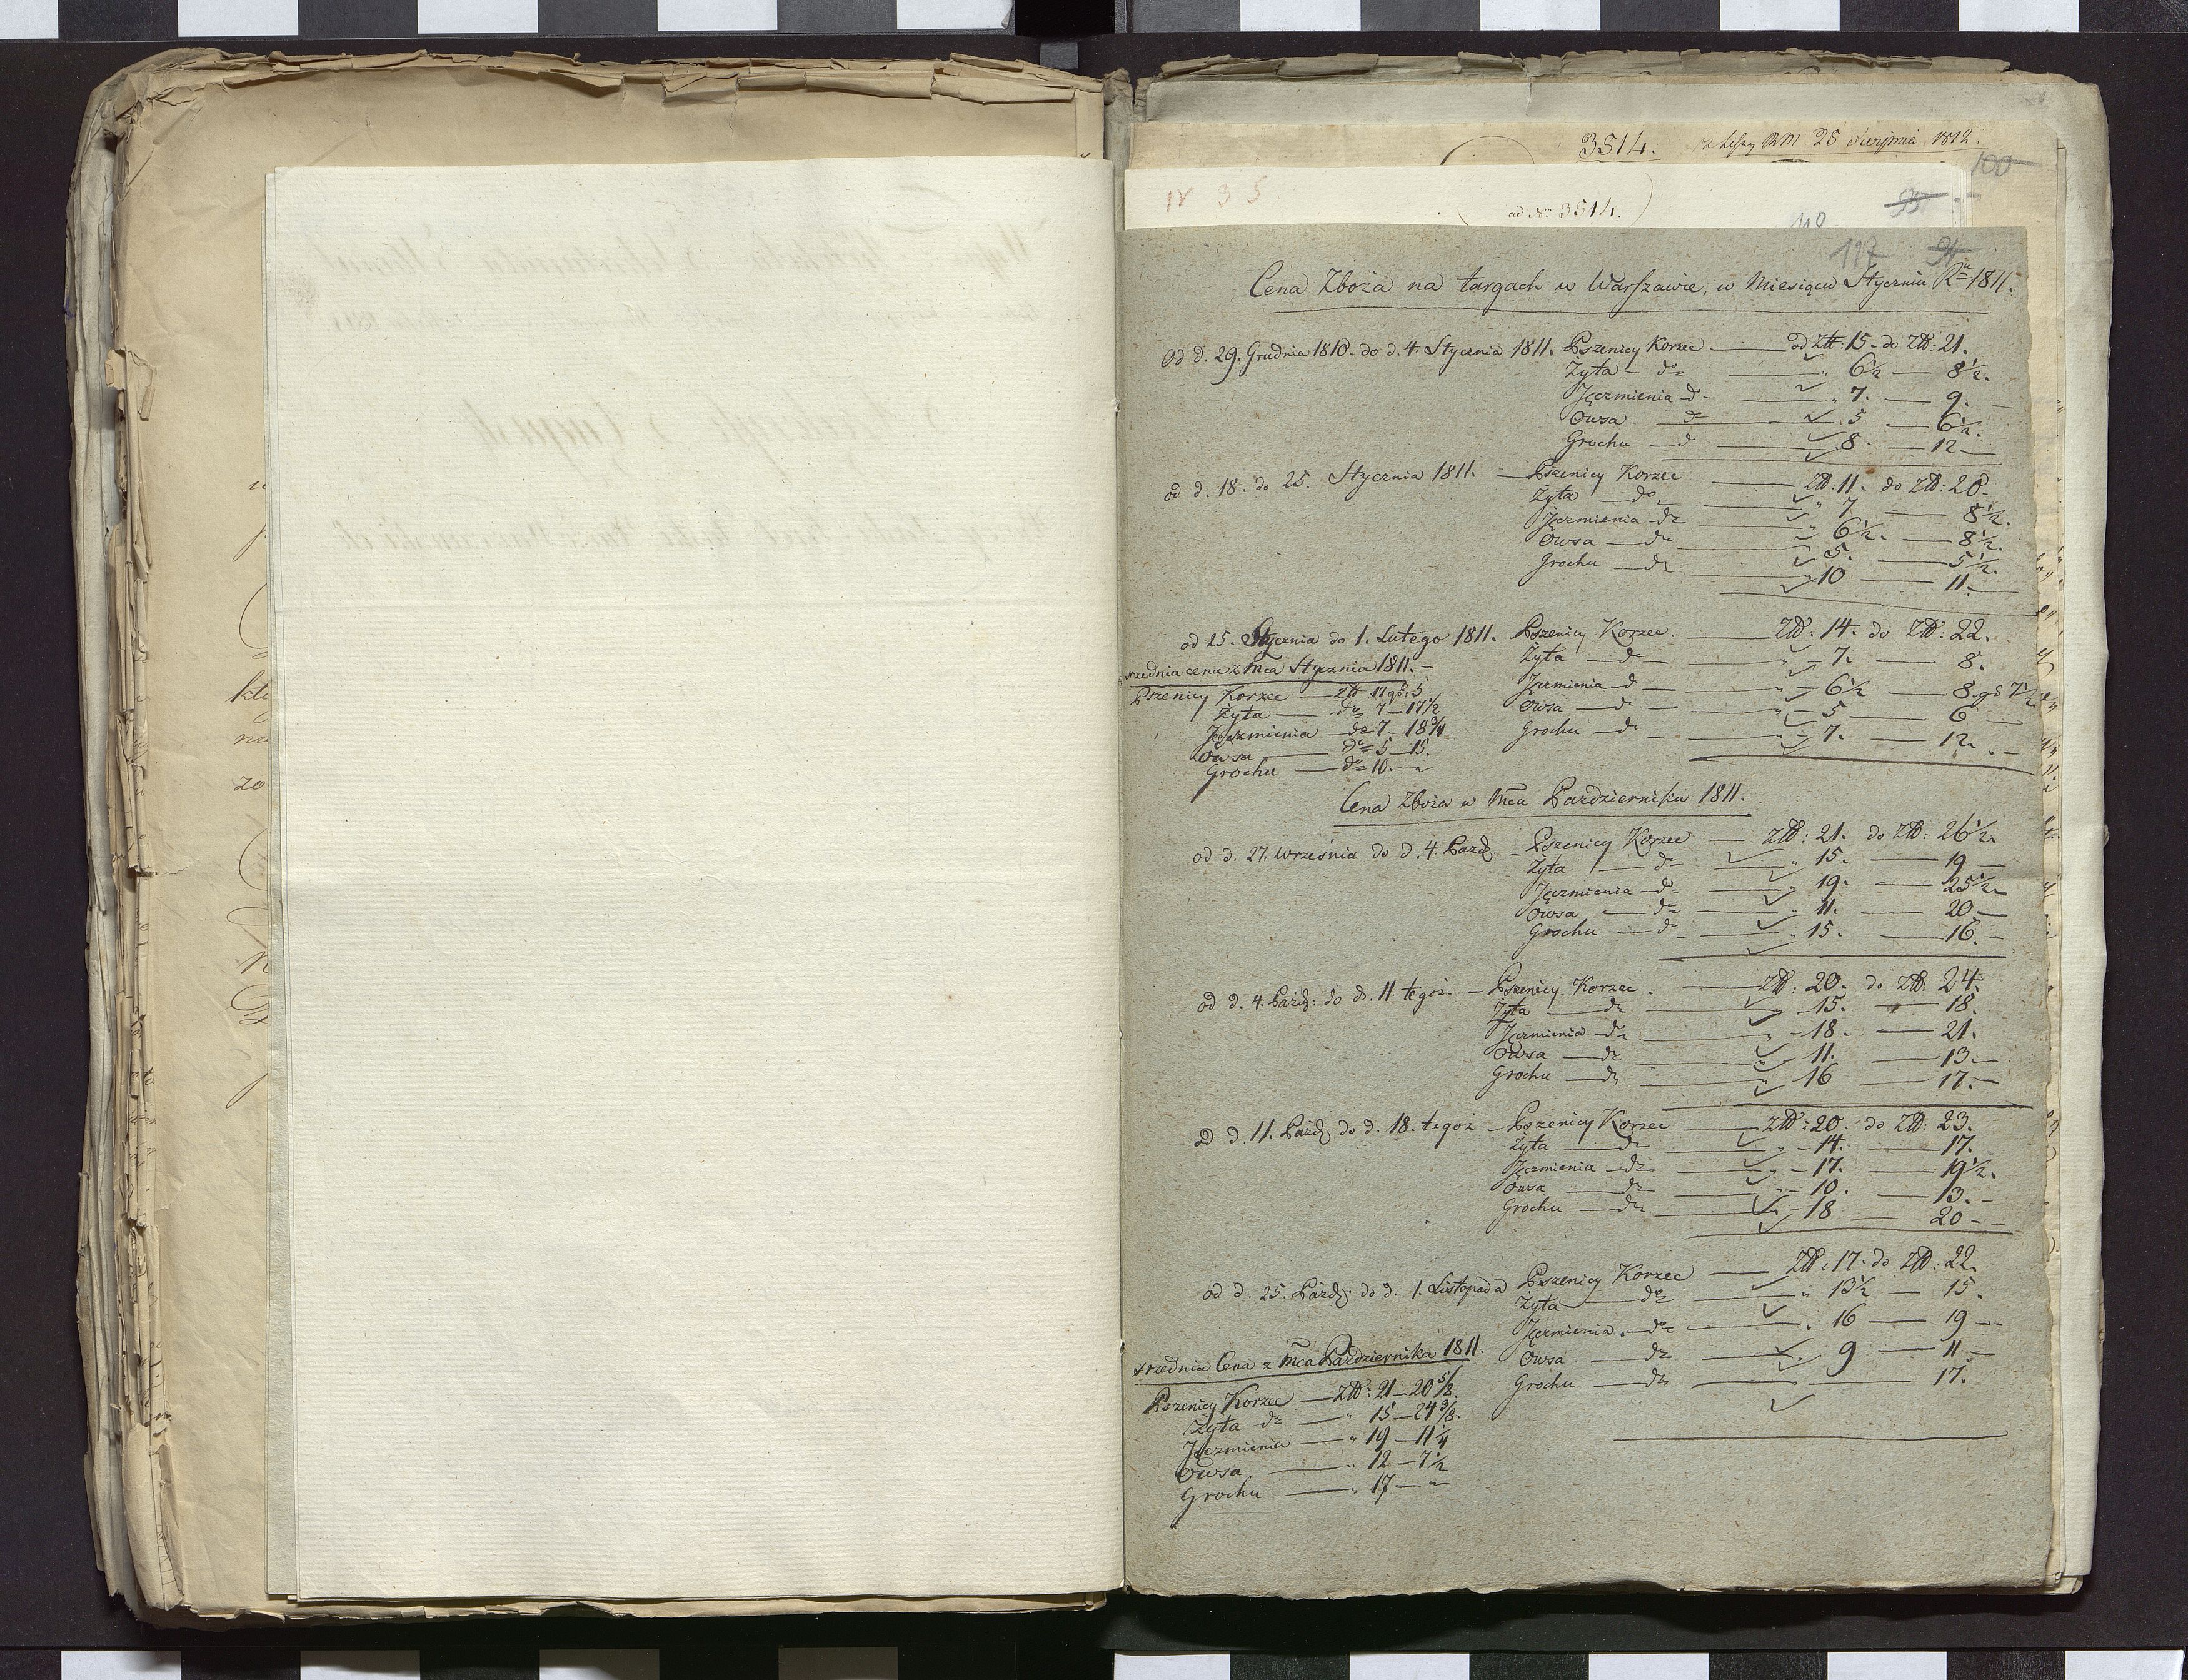 3514.
25 Sierpnia 1812.
100
IV 35
ad No 3514.
95
118
117 94
Cena Zboża na targach w Warszawie, w Miesiącu Styczniu Ru 1811.
Od d. 29. Grudnia 1810. do d. 4. Stycznia 1811. Pszenicy Korzec — od Złt: 15. do Złt: 21.
Żyta — do — " 6½ — 8½.
Jęczmienia do — " 7. — 9.
Owsa do — " 5 — 6½.
Grochu — do — " 8 — 12
od d. 18. do 25. Stycznia 1811. — Pszenicy Korzec — Złt: 11. do Złt: 20.
Żyta — do — " 7 — 8½.
Jęczmienia do — " 6½. — 8½.
Owsa — do — " 5. — 5½.
Grochu — do — " 10 — 11.
od 25. Stycznia do 1. Lutego 1811. Pszenicy Korzec. — Złt. 14. do Złt: 22.
Żyta — do — " 7. — 8.
Jęczmienia do — " 6½ — 8. gr 7½
Owsa — do — " 5 — 6
Grochu — do — " 7. — 12.
srzednia cena z Mca Stycznia 1811. —
Pszenicy Korzec — Złt 17 gr: 5
Żyta — do 7 — 17½
Jęczmienia — do 7 — 18¾
Owsa — do 5 — 15.
Grochu — do 10. — "
Cena Zboża w Mcu Pazdzierniku 1811.
od d. 27. Września do d. 4. Pazdz. — Pszenicy Korzec — Złt: 21. do Złt: 26½.
Żyta — do — " 15. — 19 —
Jęczmienia — do — " 19. — 25½
Owsa — do — " 11. — 20 —
Grochu — do — " 15. — 16. —
od d. 4. Pażdz: do d. 11. tegoż. — Pszenicy Korzec. — Złt: 20. do Złt: 24.
Żyta — do — " 15. " 18.
Jęczmienia — do — " 18. — 21.
Owsa — do — " 11. — 13. —
Grochu — do — " 16 — 17. —
od d. 11. Pażdz do d. 18. tegoż — Pszenicy Korzec — Złt: 20. do Złt: 23.
Żyta — do — " 14. — 17.
Jęczmienia — do — " 17. — 19½.
Owsa — do — " 10. — 13. —
Grochu — do — " 18 — 20 —
od d. 25. Pażdz: do d. 1. Listopada Pszenicy Korzec — Złt: 17. do Złt: 22.
Żyta — do — " 13½ — 15.
Jęczmienia. — do — " 16 — 19 —
Owsa — do — " 9 — 11 —
Grochu — do — 17.
srzednia Cena z Mca Pazdziernika 1811.
Pszenicy Korzec — Złt: 21 — 20⅝.
Żyta do — " 15 — 24⅜.
Jęczmienia — " 19 — 11¼
Owsa — " 12 — 7½
Grochu — " 17 — "